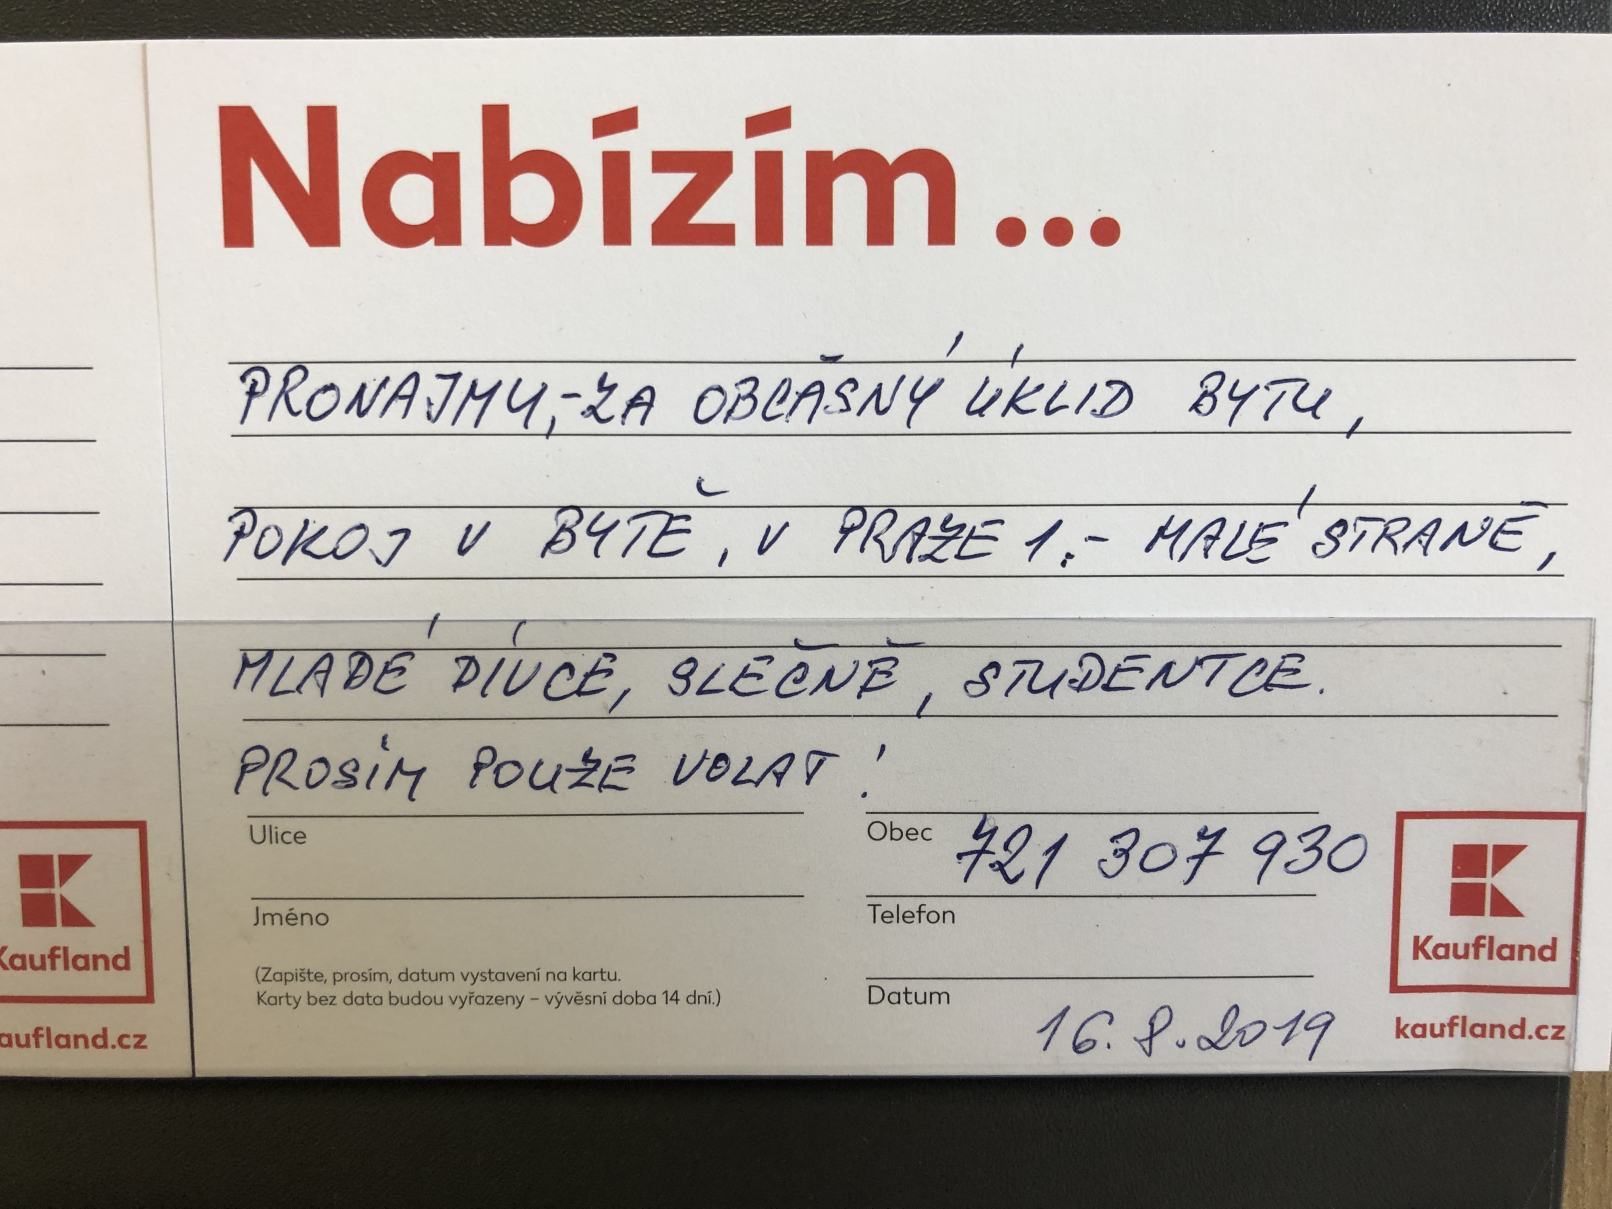 Nabízím...
PRONAJMU,-ZA OBČASNÝ ÚKLID BYTU,
POKOJ V BYTĚ, V PRAZE 1.- MALÉ STRANĚ,
MLADÉ DÍVCE, SLEČNĚ, STUDENTCE.
PROSÍM POUZE VOLAT!
Ulice
Obec 721 307 930
Jméno
Telefon
(Zapište, prosím, datum vystavení na kartu.
Karty bez data budou vyřazeny – vývěsní doba 14 dní.)
Datum
16.8.2019
Kaufland
kaufland.cz
Kaufland
aufland.cz